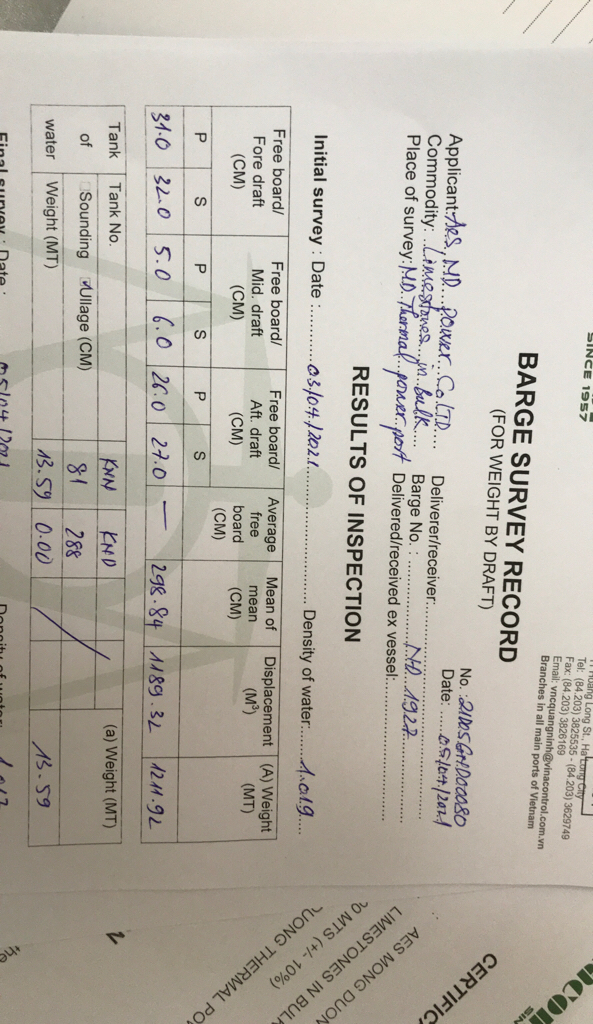 SINCE 1957
Huang Long St., Ha Long City
Tel: (84.203) 3825535 - (84.203) 3629749
Fax: (84.203) 3826169
Email: vncquangninh@vinacontrol.com.vn
Branches in all main ports of Vietnam
BARGE SURVEY RECORD
(FOR WEIGHT BY DRAFT)
No.: 21D05GHD00080
Date: 05/04/2021
Applicant: AES MD power Co. LTD Deliverer/receiver:
Commodity: Limestones in bulk Barge No.: ND 1927
Place of survey: MD Thermal power port Delivered/received ex vessel:
RESULTS OF INSPECTION
Initial survey : Date : 03/04/2021 Density of water: 1.019
Free board/ Fore draft (CM) Free board/ Mid. draft (CM) Free board/ Aft. draft (CM) Average free board (CM) Mean of mean (CM) Displacement (M³) (A) Weight (MT)
P S P S P S
31.0 32.0 5.0 6.0 26.0 27.0 — 298.84 1189.32 1211.92
Tank of water Tank No. KNN KND (a) Weight (MT)
Sounding Ullage (CM) 81 288
Weight (MT) 13.59 0.00 13.59
Final survey : Date : 05/04/2021 Density of water:
2
CERTIFICA
AES MONG DUON
LIMESTONES IN BULK
0 MTS (+/- 10%)
DUONG THERMAL POW
the